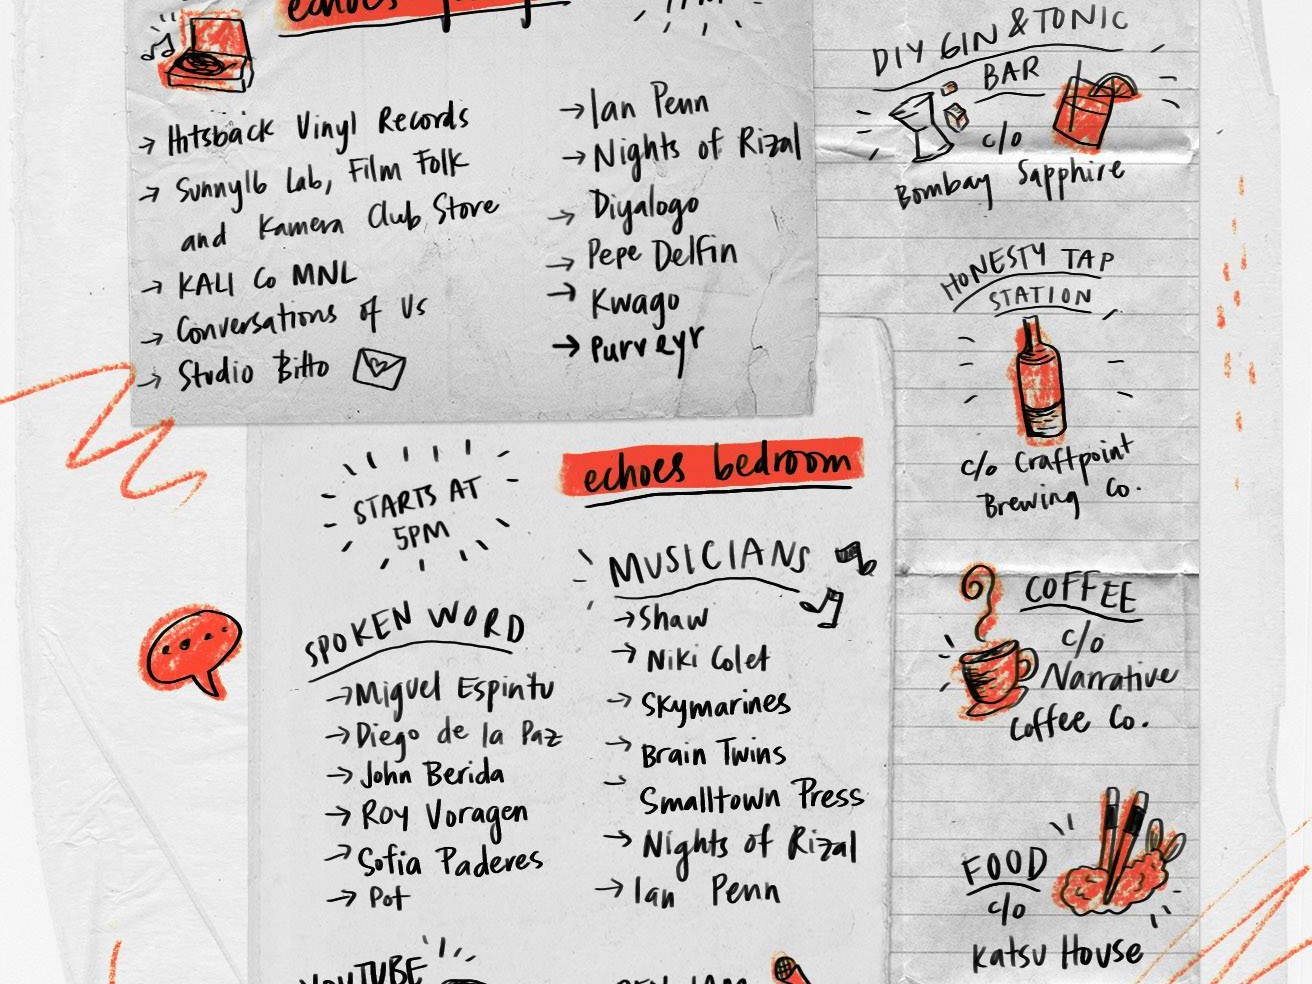 echoes
→ Hitsback Vinyl Records
→ Sunny16 Lab, Film Folk
and Kamera Club Store
→ KALI Co MNL
→ Conversations of Us
→ Studio Bitto
→ Ian Penn
→ Nights of Rizal
→ Diyalogo
→ Pepe Delfin
→ Kwago
→ Purveyr
DIY GIN & TONIC
BAR
c/o
Bombay Sapphire
HONESTY TAP
STATION
c/o Craftpoint
Brewing Co.
COFFEE
c/o
Narrative
Coffee Co.
FOOD
c/o
Katsu House
STARTS AT
5PM
echoes bedroom
SPOKEN WORD
→ Miguel Espintu
→ Diego de la Paz
→ John Berida
→ Roy Voragen
→ Sofia Paderes
→ Pot
MUSICIANS
→ Shaw
→ Niki Colet
→ Skymarines
→ Brain Twins
→ Smalltown Press
→ Nights of Rizal
→ Ian Penn
YOUTUBE